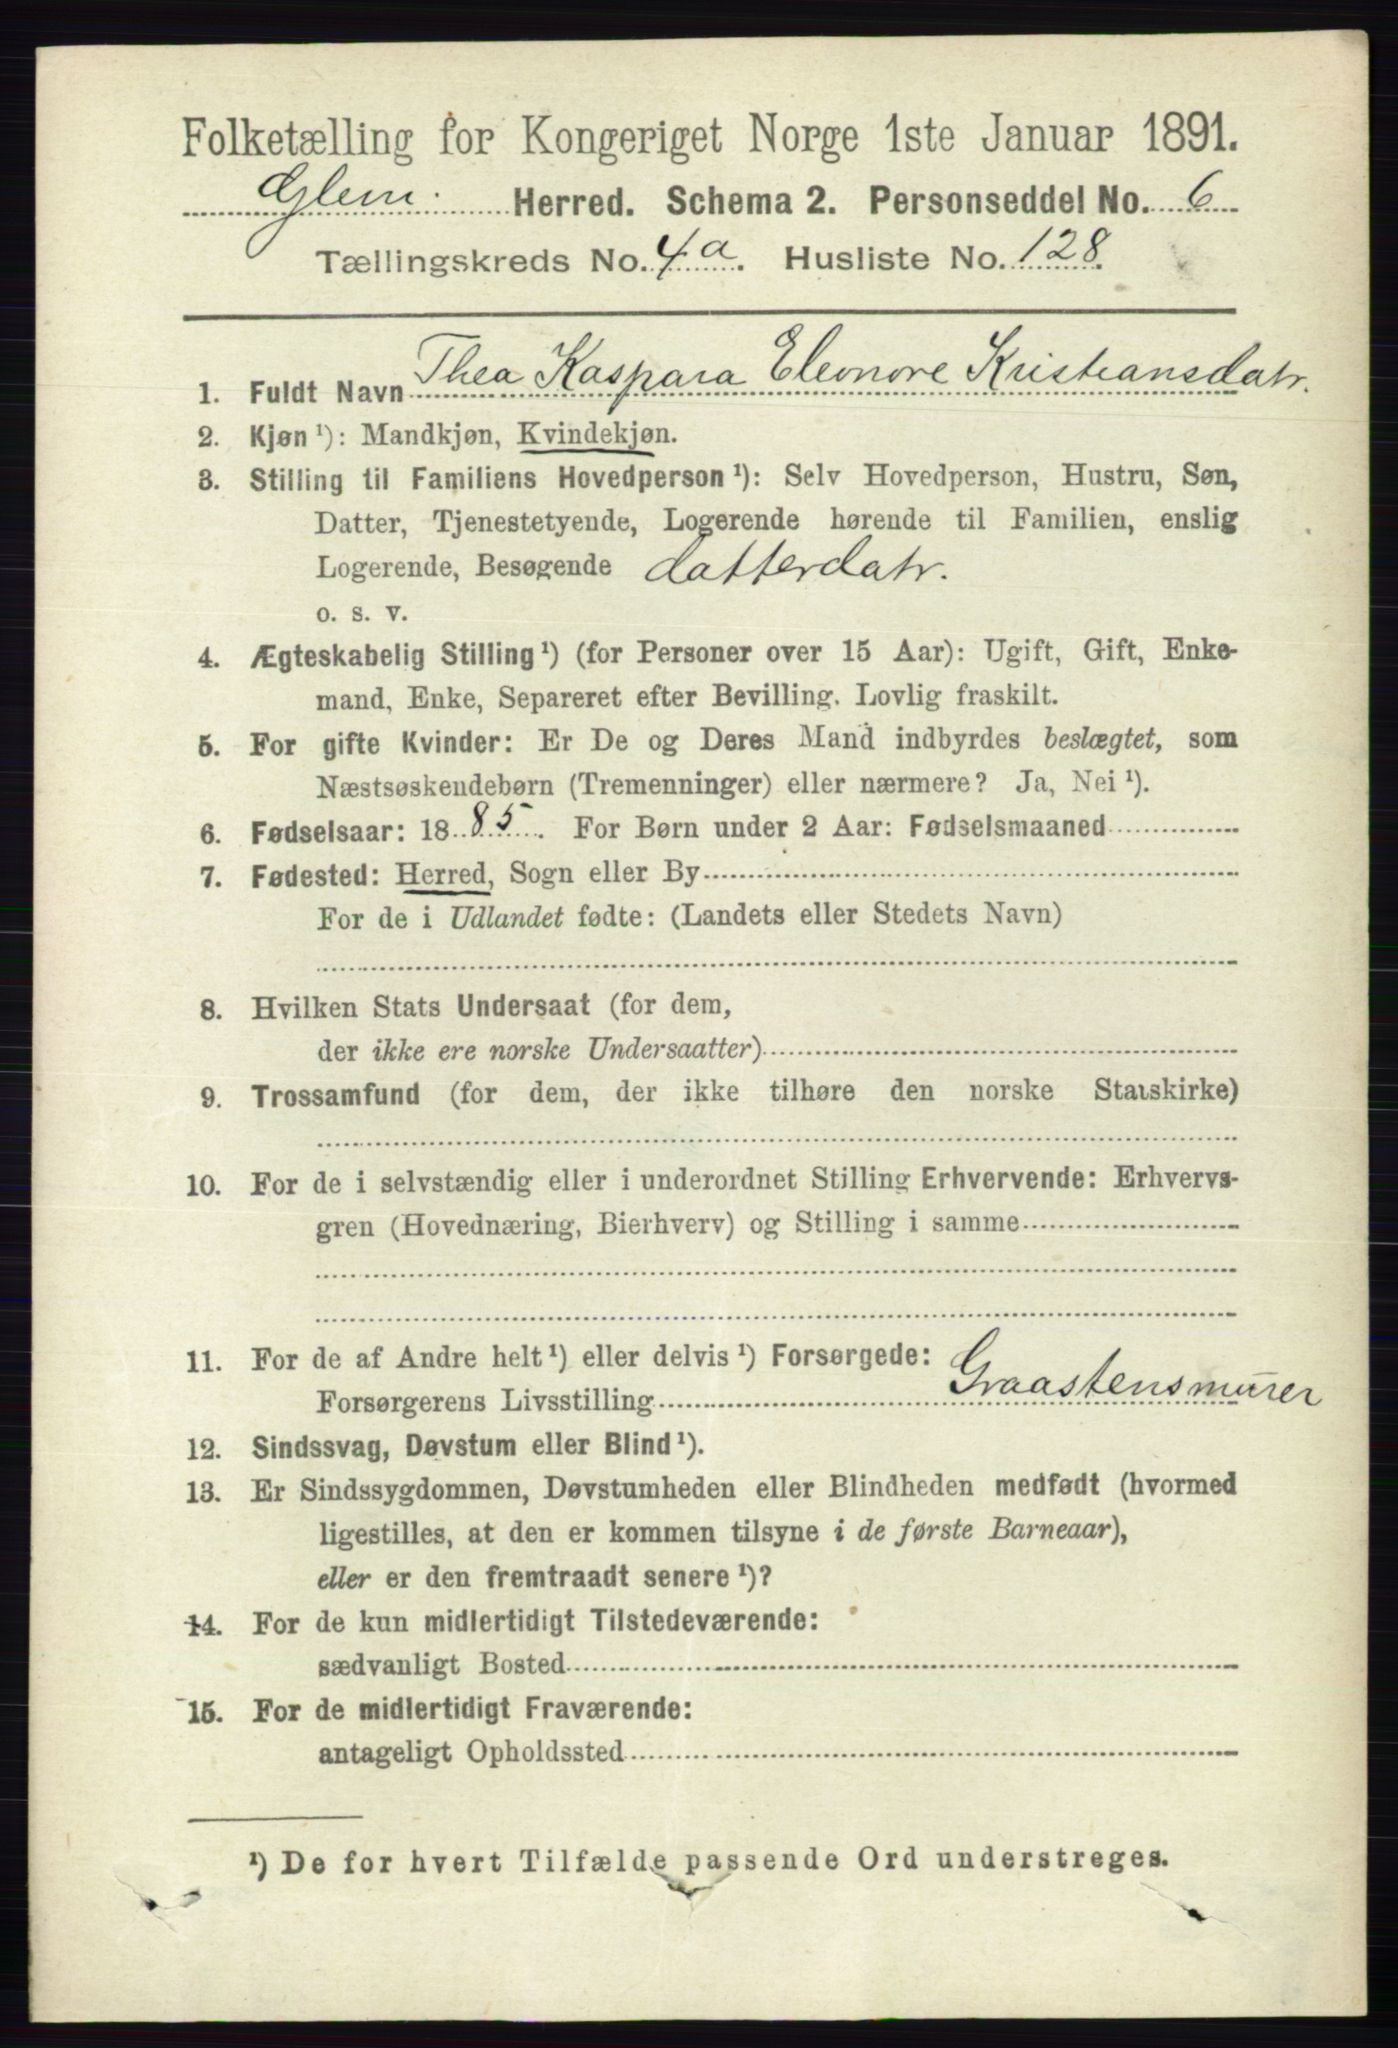 Folketælling for Kongeriget Norge 1ste Januar 1891.
Glem. Herred. Schema 2. Personseddel No. 6
Tællingskreds No. 4a. Husliste No. 128.
1. Fuldt Navn Thea Kaspara Eleonore Kristiansdatr.
2. Kjøn ¹): Mandkjøn, Kvindekjøn.
3. Stilling til Familiens Hovedperson ¹): Selv Hovedperson, Hustru, Søn,
Datter, Tjenestetyende, Logerende hørende til Familien, enslig
Logerende, Besøgende datterdatr.
o. s. v.
4. Ægteskabelig Stilling ¹) (for Personer over 15 Aar): Ugift, Gift, Enke-
mand, Enke, Separeret efter Bevilling. Lovlig fraskilt.
5. For gifte Kvinder: Er De og Deres Mand indbyrdes beslægtet, som
Næstsøskendebørn (Tremenninger) eller nærmere? Ja, Nei ¹).
6. Fødselsaar: 1885. For Børn under 2 Aar: Fødselsmaaned
7. Fødested: Herred, Sogn eller By
For de i Udlandet fødte: (Landets eller Stedets Navn)
8. Hvilken Stats Undersaat (for dem,
der ikke ere norske Undersaatter)
9. Trossamfund (for dem, der ikke tilhøre den norske Statskirke)
10. For de i selvstændig eller i underordnet Stilling Erhvervende: Erhvervs-
gren (Hovednæring, Bierhverv) og Stilling i samme
11. For de af Andre helt ¹) eller delvis ¹) Forsørgede:
Forsørgerens Livsstilling Graastensmurer
12. Sindssvag, Døvstum eller Blind ¹).
13. Er Sindssygdommen, Døvstumheden eller Blindheden medfødt (hvormed
ligestilles, at den er kommen tilsyne i de første Barneaar),
eller er den fremtraadt senere ¹)?
14. For de kun midlertidigt Tilstedeværende:
sædvanligt Bosted
15. For de midlertidigt Fraværende:
antageligt Opholdssted
¹) De for hvert Tilfælde passende Ord understreges.